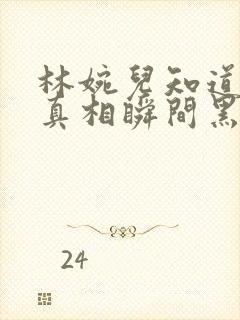 林婉兒知道
真相瞬間黑
24